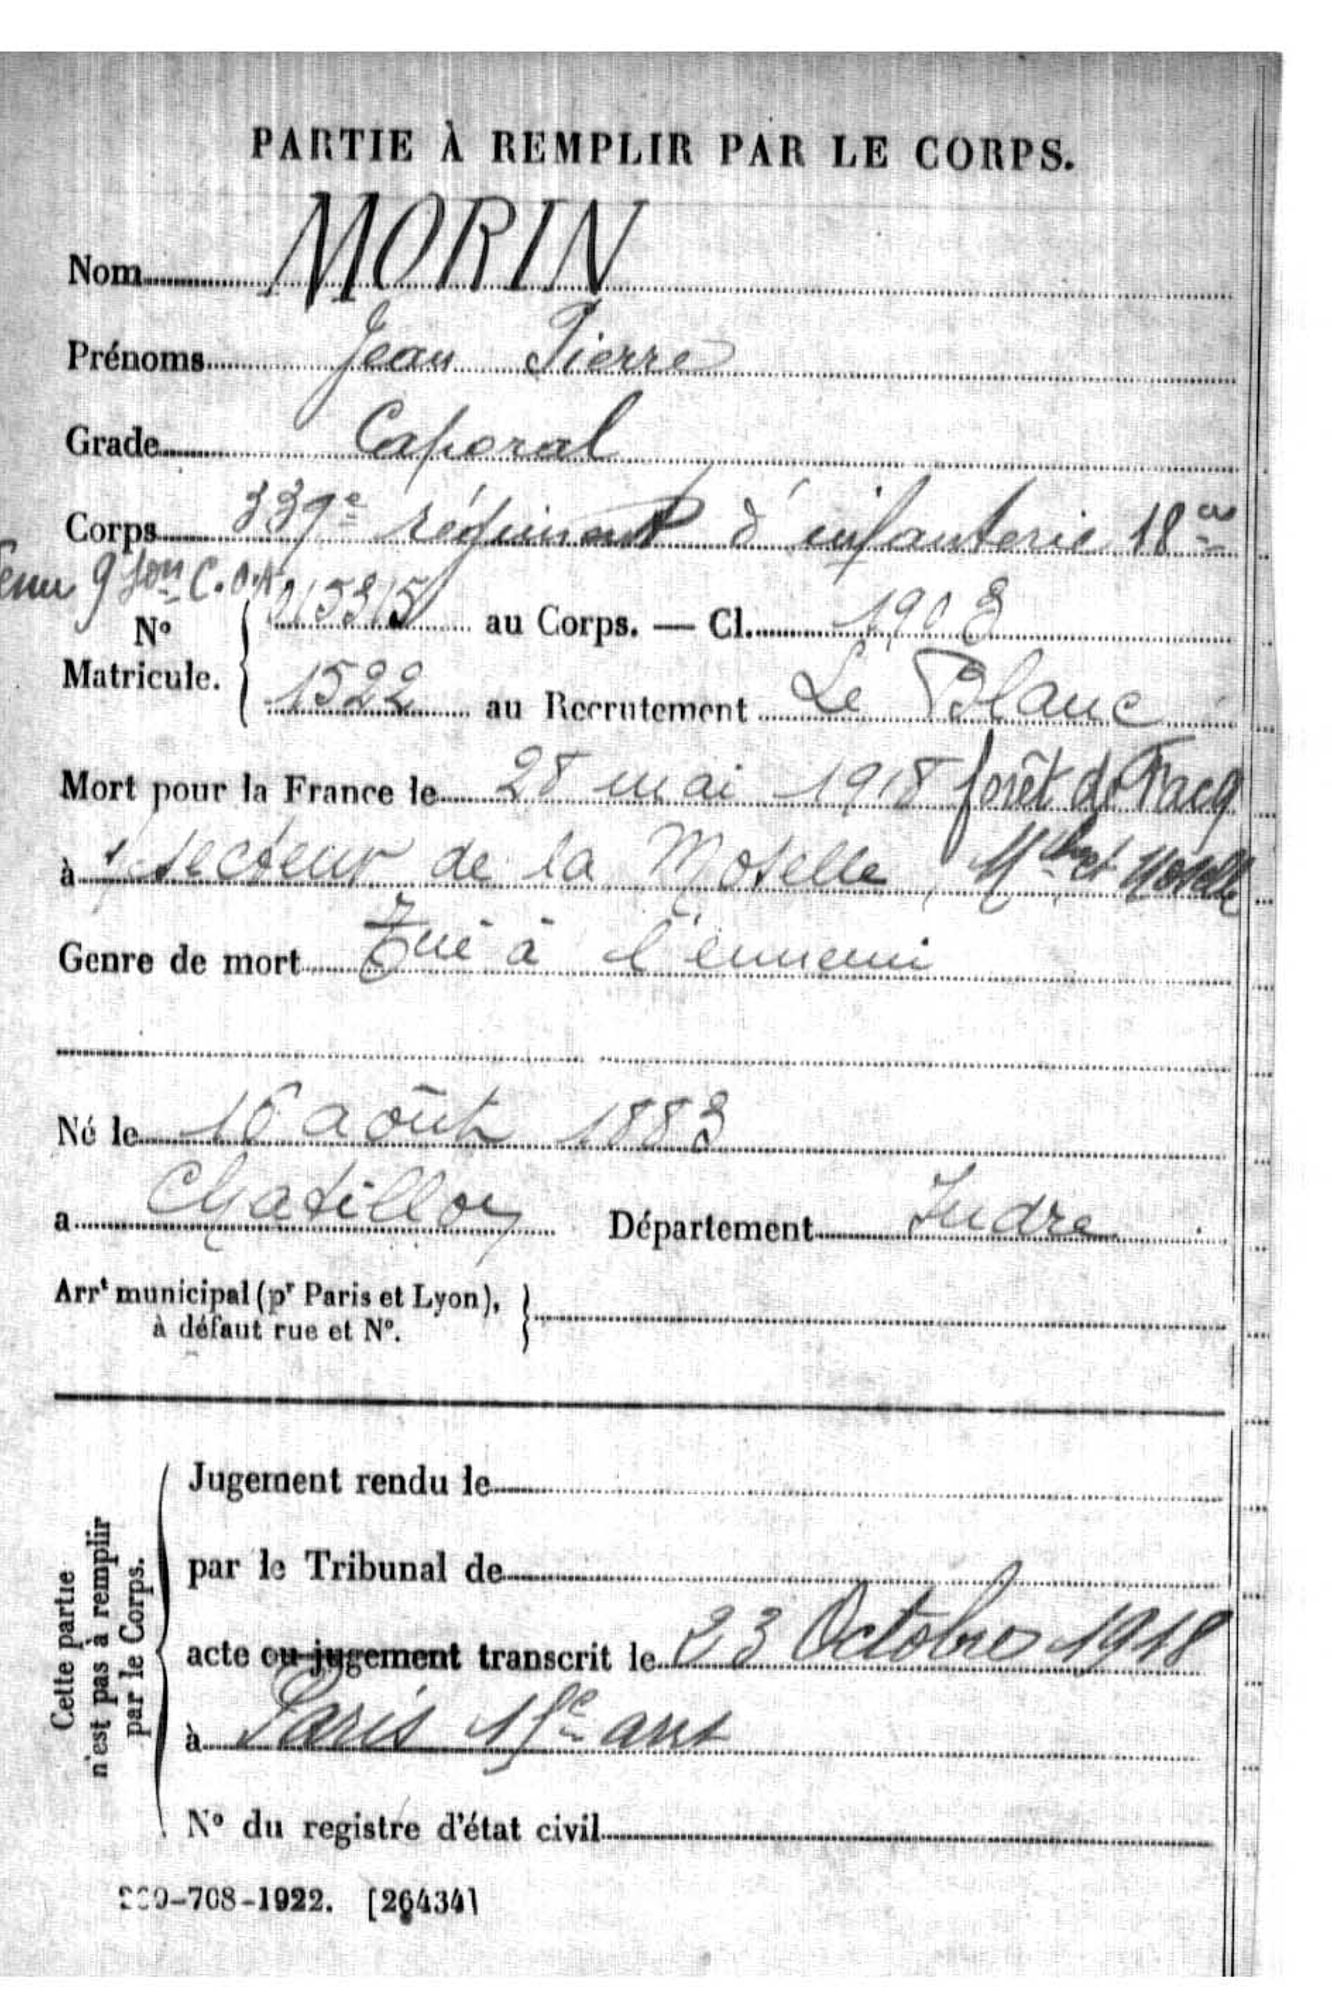 PARTIE À REMPLIR PAR LE CORPS.
Nom MORIN
Prénoms Jean Pierre
Grade Caporal
Corps 339e régiment d'infanterie 18e
9 son C.O.A
No 015315 au Corps. — Cl. 1903
Matricule. 1522 au Recrutement Le Blanc
Mort pour la France le 28 mai 1918 forêt de Facq
à secteur de la Moselle Mthe et Moselle
Genre de mort Tué à l'ennemi
Né le 16 août 1883
a Chatillon Département Indre
Arrt municipal (pr Paris et Lyon),
à défaut rue et No.
Cette partie
n'est pas à remplir
par le Corps.
Jugement rendu le
par le Tribunal de
acte ou jugement transcrit le 23 Octobre 1918
à Paris arrt
No du registre d'état civil
-708-1922. [26434]